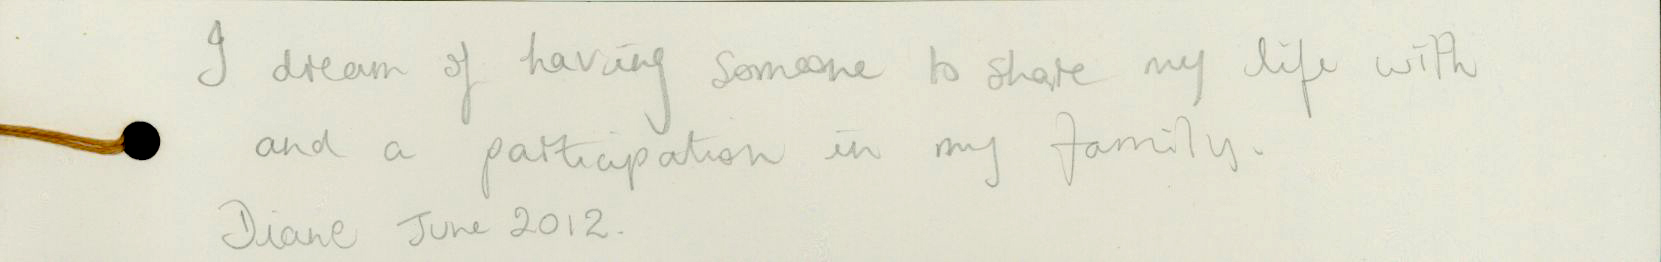 I dream of having someone to share my life with
and a participation in my family.
Diane June 2012.